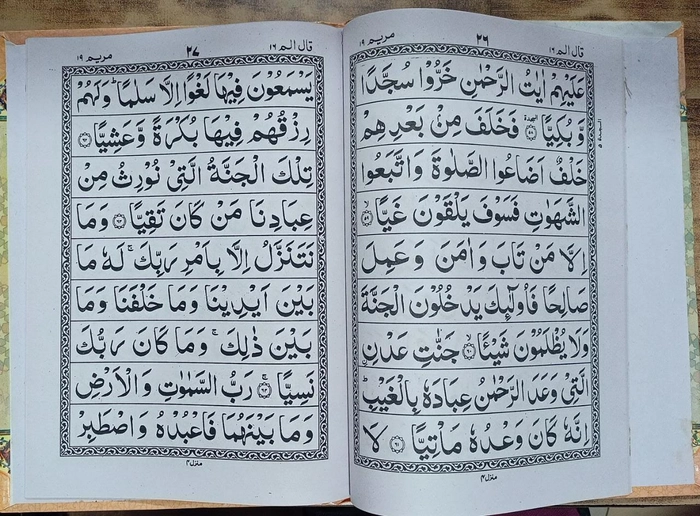 قال الم ١٦
٢٦
مريم ١٩
عَلَيْهِمْ اٰيٰتُ الرَّحْمٰنِ خَرُّوْا سُجَّدًا
وَّ بُكِيًّا ۩ ﴿۵۸﴾ فَخَلَفَ مِنْۢ بَعْدِهِمْ
خَلْفٌ اَضَاعُوا الصَّلٰوةَ وَاتَّبَعُوا
الشَّهَوٰتِ فَسَوْفَ يَلْقَوْنَ غَيًّا ۙ﴿۵۹﴾
اِلَّا مَنْ تَابَ وَاٰمَنَ وَعَمِلَ
صَالِحًا فَاُولٰٓئِكَ يَدْخُلُوْنَ الْجَنَّةَ
وَلَا يُظْلَمُوْنَ شَيْئًا ۙ﴿۶۰﴾ جَنّٰتِ عَدْنِ
ۨالَّتِيْ وَعَدَ الرَّحْمٰنُ عِبَادَهٗ بِالْغَيْبِ ؕ
اِنَّهٗ كَانَ وَعْدُهٗ مَاْتِيًّا ﴿۶۱﴾ لَا
منزل ۴
السجدة ۵
قال الم ١٦
٢٧
مريم ١٩
يَسْمَعُوْنَ فِيْهَا لَغْوًا اِلَّا سَلٰمًا ؕ وَلَهُمْ
رِزْقُهُمْ فِيْهَا بُكْرَةً وَّعَشِيًّا ﴿۶۲﴾
تِلْكَ الْجَنَّةُ الَّتِيْ نُوْرِثُ مِنْ
عِبَادِنَا مَنْ كَانَ تَقِيًّا ﴿۶۳﴾ وَمَا
نَتَنَزَّلُ اِلَّا بِاَمْرِ رَبِّكَ ۚ لَهٗ مَا
بَيْنَ اَيْدِيْنَا وَمَا خَلْفَنَا وَمَا
بَيْنَ ذٰلِكَ ۚ وَمَا كَانَ رَبُّكَ
نَسِيًّا ۚ﴿۶۴﴾ رَبُّ السَّمٰوٰتِ وَالْاَرْضِ
وَمَا بَيْنَهُمَا فَاعْبُدْهُ وَاصْطَبِرْ
منزل ۴